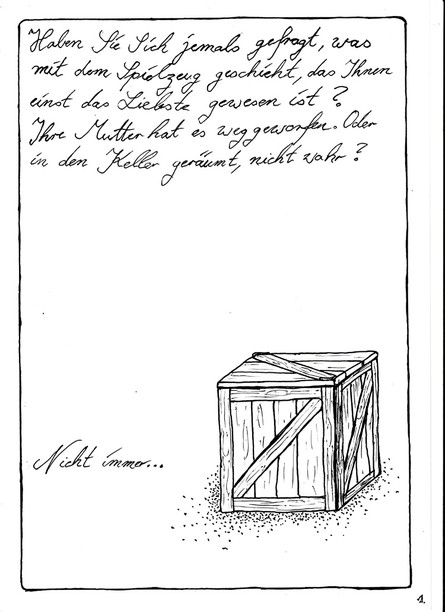 Haben Sie Sich jemals gefragt, was
mit dem Spielzeug geschieht, das Ihnen
einst das Liebste gewesen ist?
Ihre Mutter hat es weggeworfen. Oder
in den Keller geräumt, nicht wahr?
Nicht immer...
1.